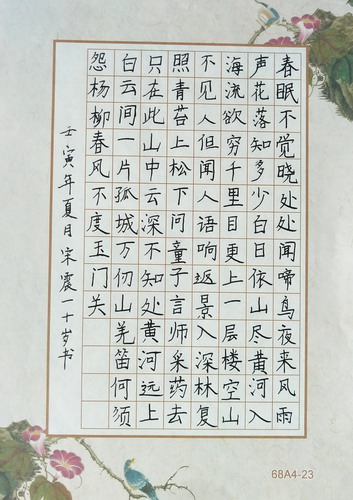 春眠不觉晓处处闻啼鸟夜来风雨
声花落知多少白日依山尽黄河入
海流欲穷千里目更上一层楼空山
不见人但闻人语响返景入深林复
照青苔上松下问童子言师采药去
只在此山中云深不知处黄河远上
白云间一片孤城万仞山羌笛何须
怨杨柳春风不度玉门关
壬寅年夏月宋震一十岁书
68A4-23